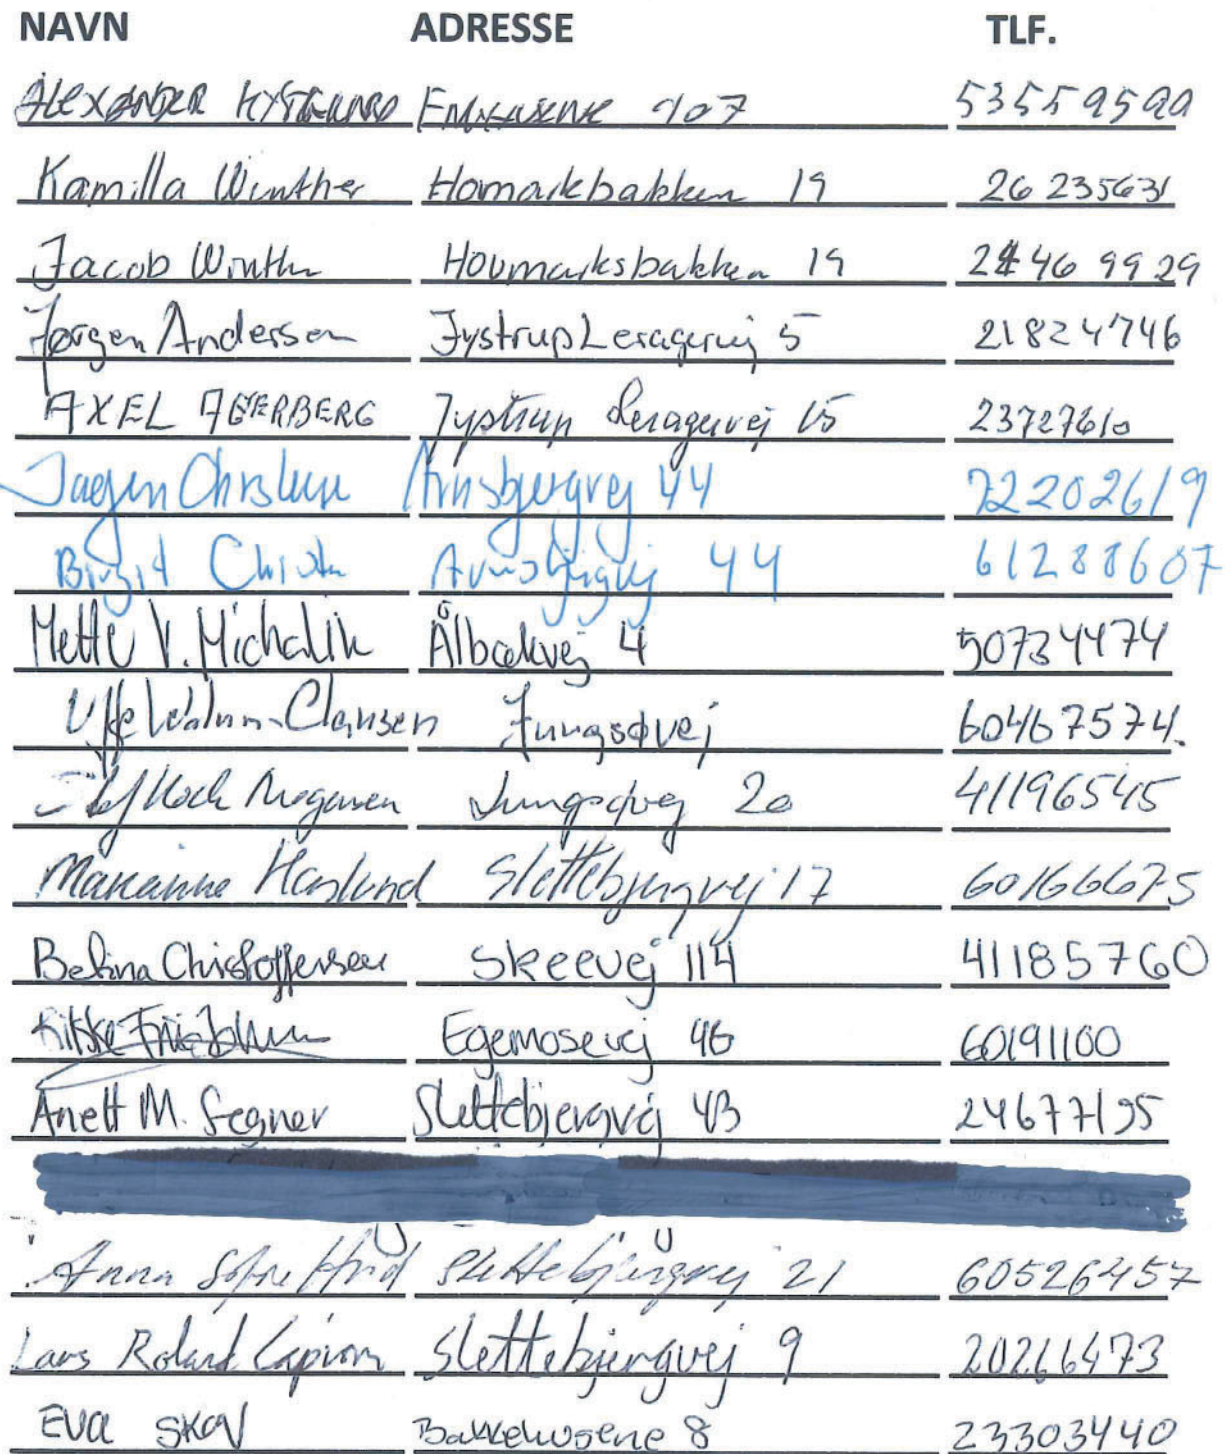 NAVN ADRESSE TLF.
ALEXANDER 107 53559590
Kamilla Winther Homarkbakken 19 26 235631
Jacob Winther Houmarksbakken 19 24 46 99 29
Jørgen Andersen Jystrup Leragervej 5 21824746
AXEL AGERBERG Jystrup Leragervej 15 23727610
44 22202619
Birgit 44 61288607
Mette V. Michalik Ålbækvej 4 50734474
Uffe Clausen Jungsøvej 60467574.
Koch Mogensen Jungsøvej 20 41196545
Marianne Haslund Slettebjergvej 17 60166675
Betina Christoffersen Skeevej 114 41185760
Egemosevej 46 60191100
Anett M. Segner Slettebjergvej 43 24677195
Anna Slettebjergvej 21 60526457
Lars Roland Slettebjergvej 9 20266473
Eva SKOV Bakkehusene 8 23303440